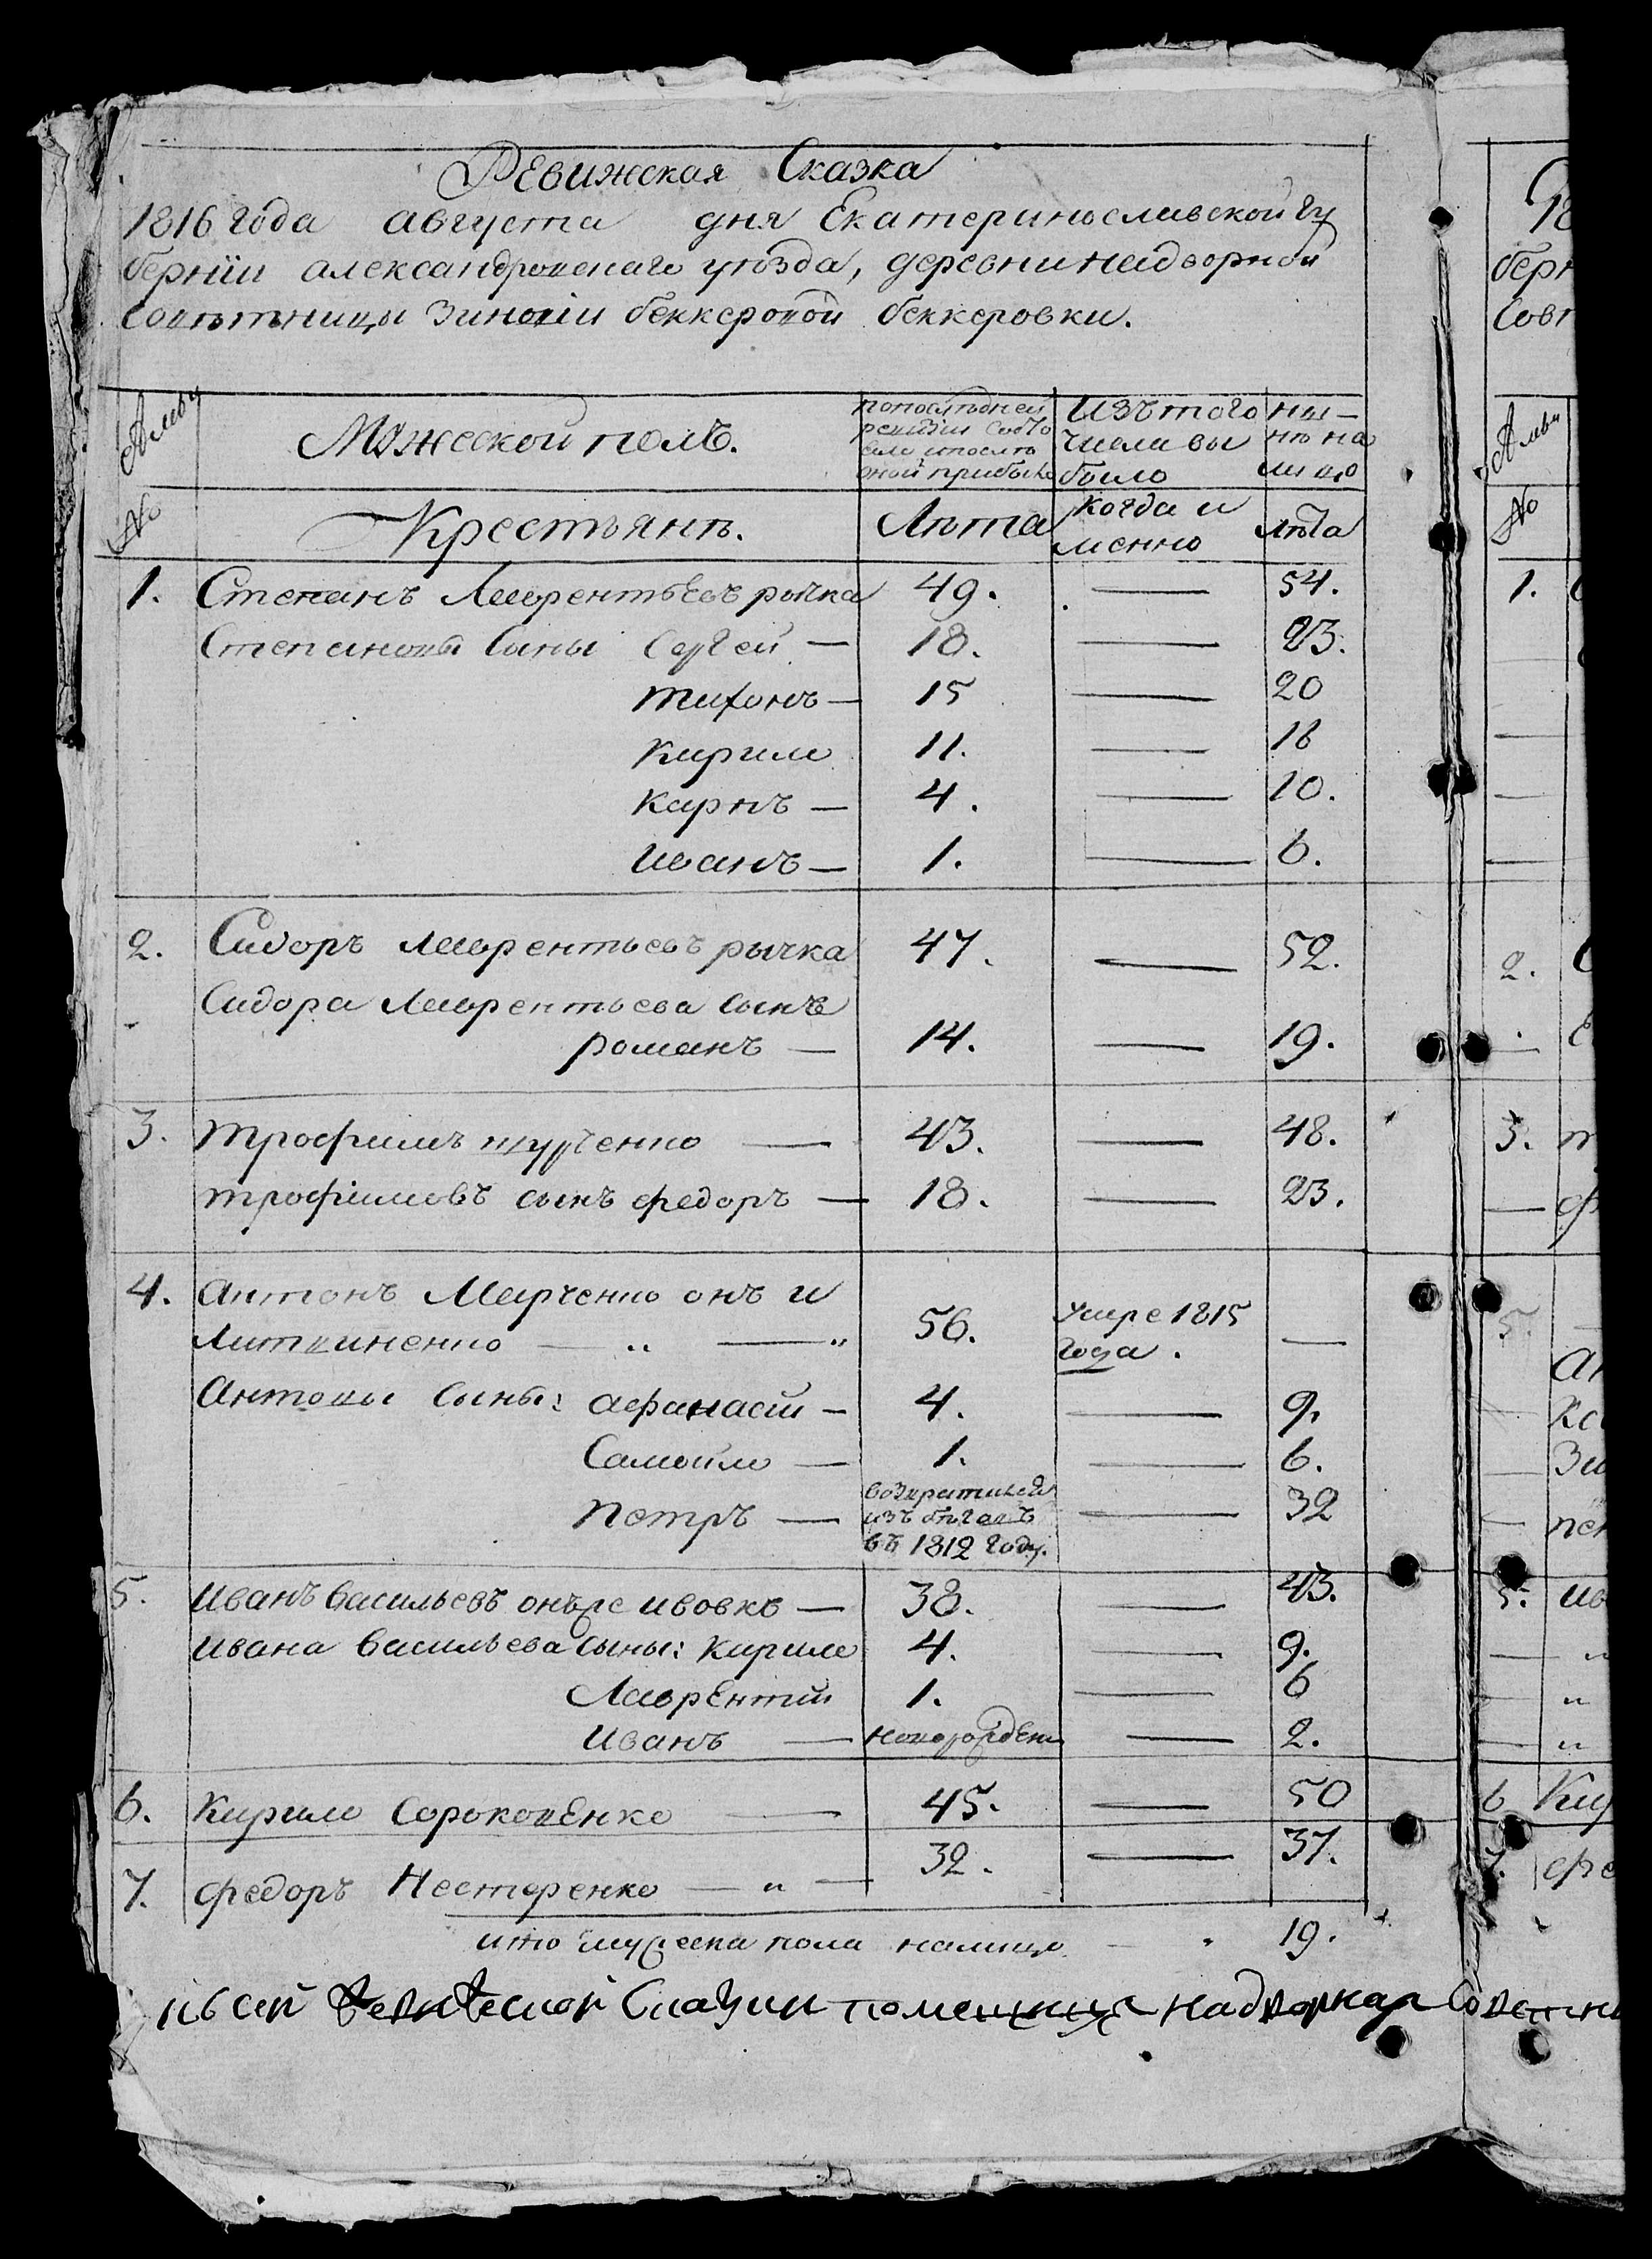 Ревижская Сказка
1816 года августа дня Екатеринославской гу
берніи александровскаго уѣзда, деревни надворной
Совѣтницы Зиновіи беккеровой беккеровки.
Мужескои полъ.
попослѣдней
ревизіи состо
было
изъ того
числа вы
было
ны-
нѣ на
лицо
№
Крестьянѣ.
Лѣта
когда и
менно
лѣта
1. Степанъ Лаврентьевъ рычка 49. — 54.
Степановы Сыны Сергей — 18. — 23.
тихонъ — 15 — 20
Кирило 11. — 16
Карпъ — 4. — 10.
Иванъ — 1. — 6.
2. Сидоръ Лаврентьевъ рычка 47. — 52.
Сидора Лаврентьева сынъ
романъ — 14. — 19.
3. трофимъ — 43. — 48.
трофимовъ сынъ федоръ — 18. — 23.
4. Антонъ Марченко онъ и
Литвиненко — „ — „ 56. Умре 1815
года. —
Антоны Сыны: афанасій — 4. — 9.
Самойло — 1. — 6.
Петръ — возвратился
изъ бѣговъ
въ 1812 году. — 32
5. Иванъ Васильевъ онъже ивовкъ — 38. — 43.
Ивана Васильева Сыны: Кирило 4. — 9.
Лаврентій 1. — 6
Иванъ — новорожденъ — 2.
6. Кирило Сороковенко — 45. — 50
7. федоръ Нестеренко — „ — 32. — 37.
итого мужеска пола налицо — 19.
къ сей Ревижской Сказки помещица надворная Советни